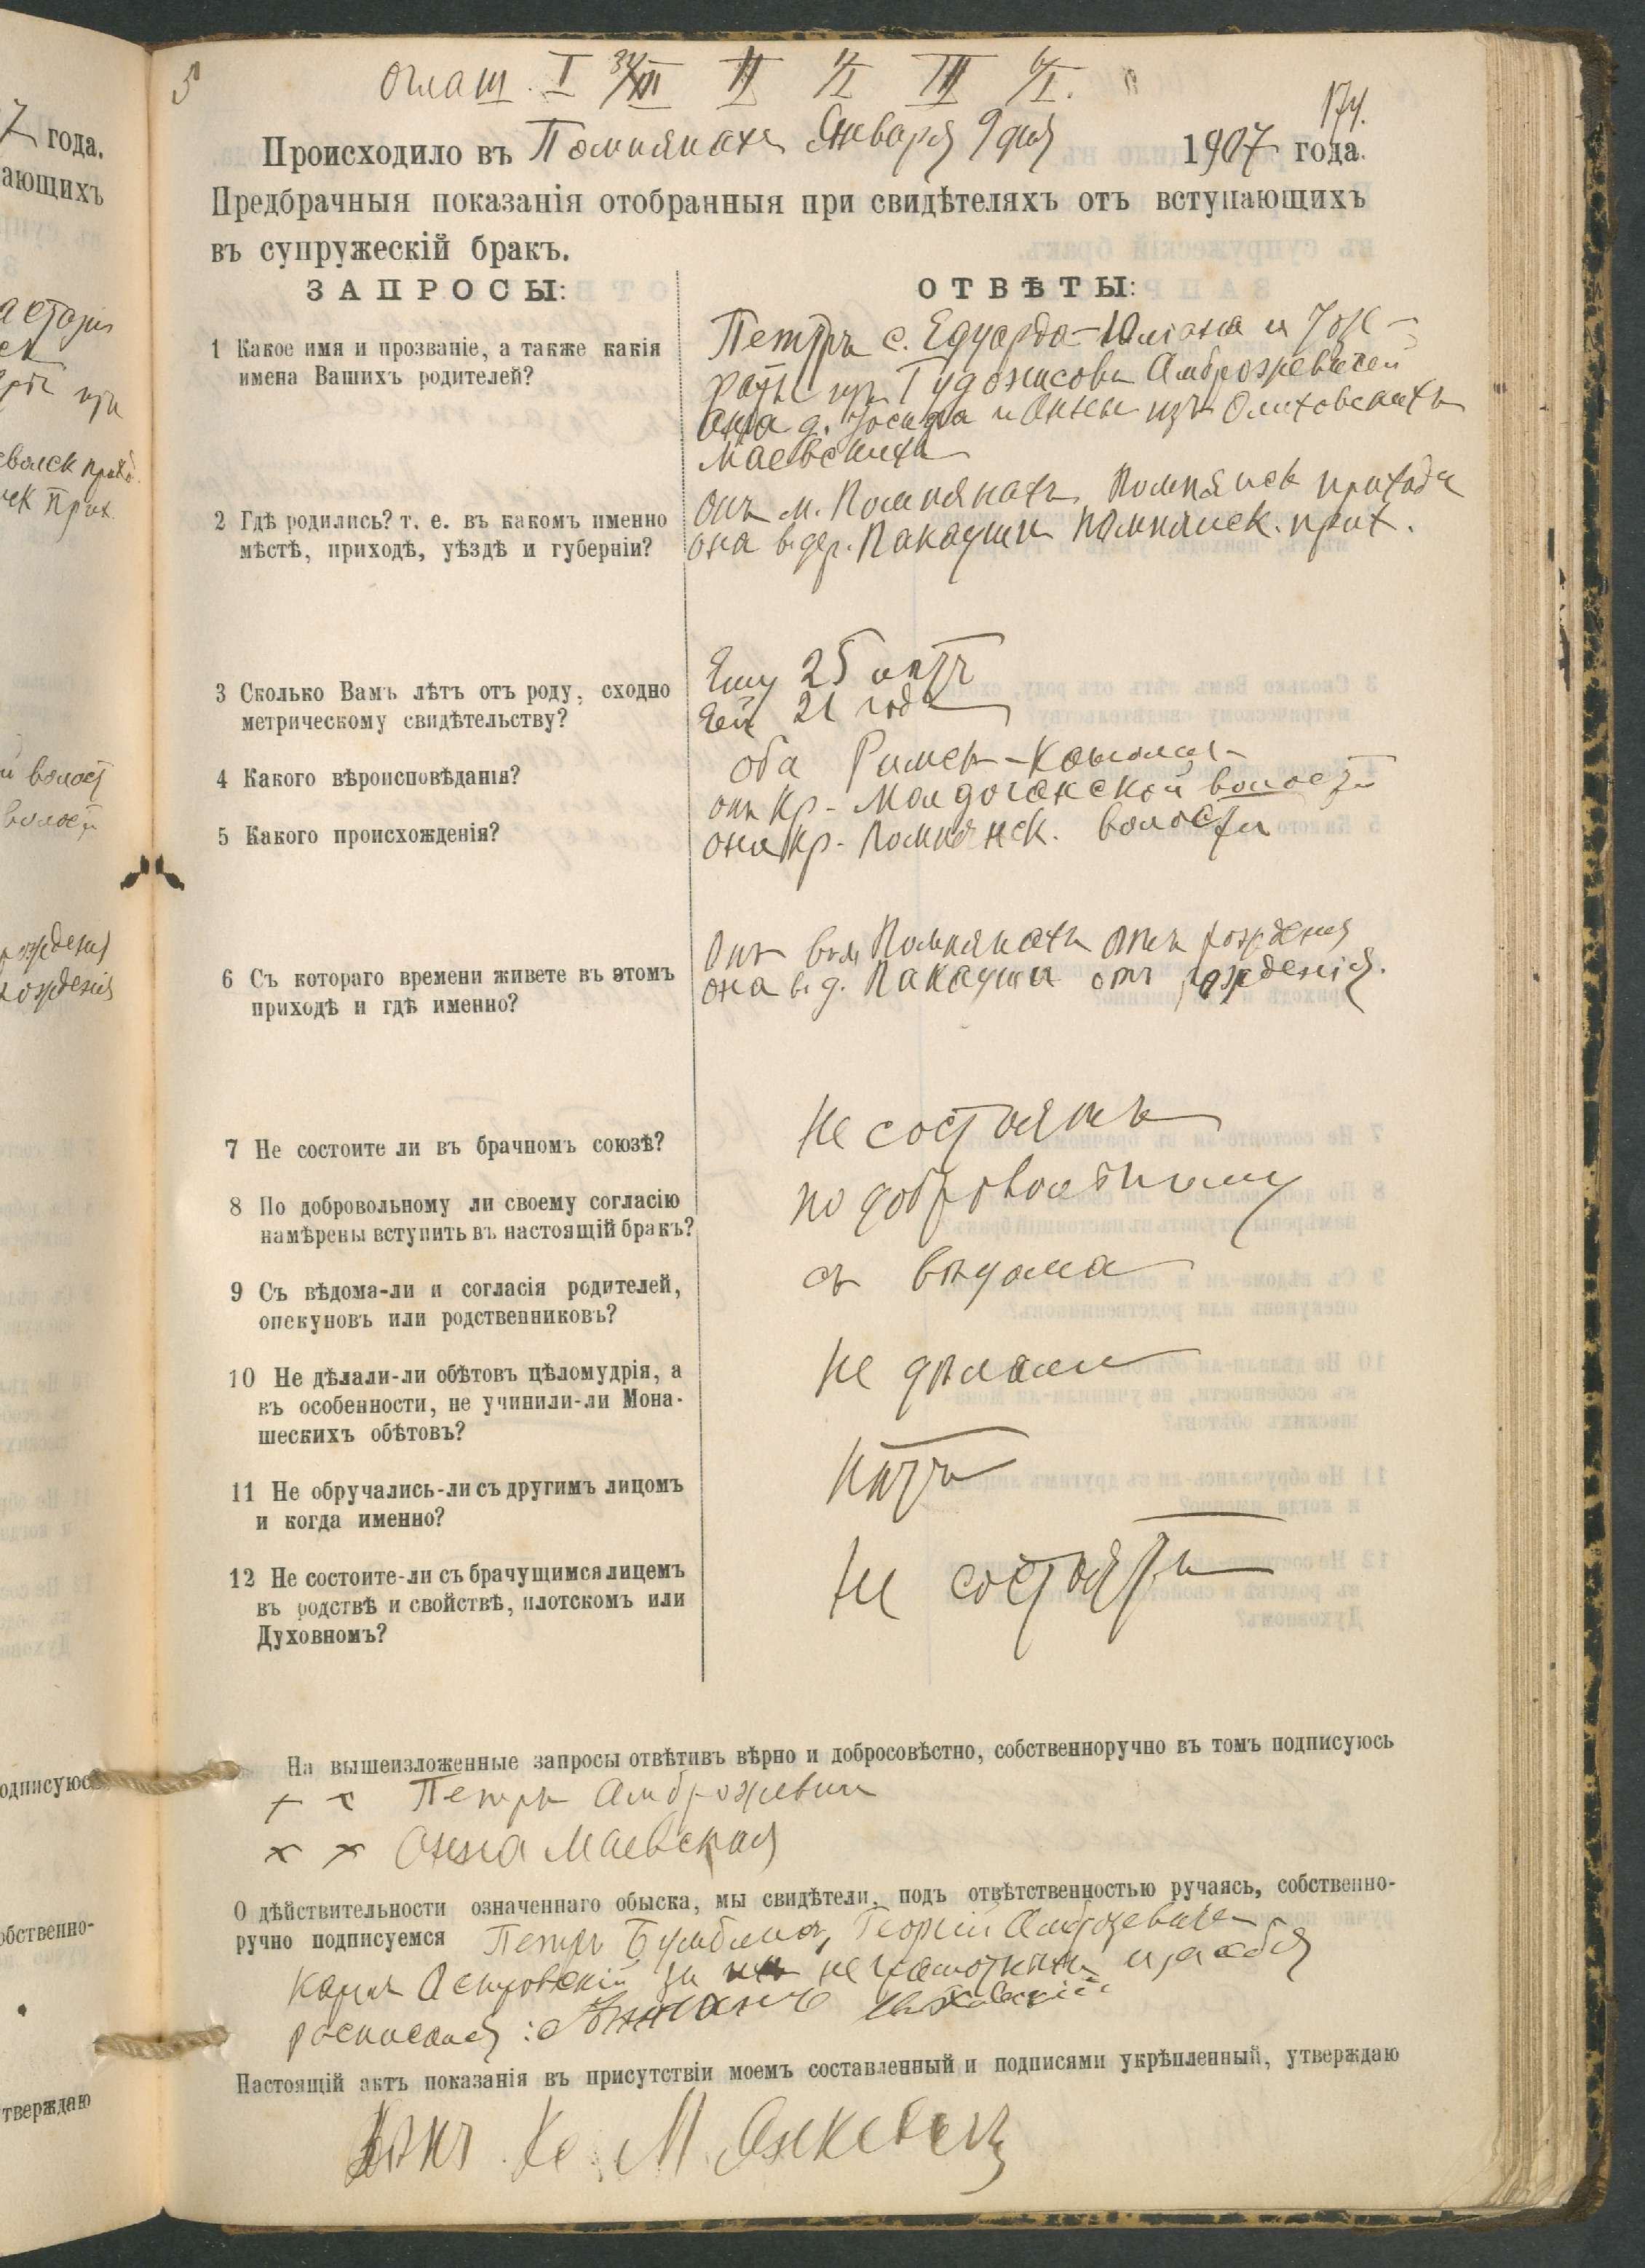 5
оглаш. I 31/XII II 1/I III 6/I.
174.
Происходило въ Помпянахъ Января 9 дня 1907 года.
Предбрачныя показанія отобранныя при свидѣтеляхъ отъ вступающихъ
въ супружескій бракъ.
ЗАПРОСЫ:
ОТВѢТЫ:
1 Какое имя и прозваніе, а также какія
имена Вашихъ родителей?
Петръ с. Едуарда-Юліана и
изъ Амброжевичей
она д. Іосифа и Анны изъ Олиховскихъ
Маевскихъ
2 Гдѣ родились? т. е. въ какомъ именно
мѣстѣ, приходѣ, уѣздѣ и губерніи?
онъ м. Помпянахъ, Помпянск прихода
она в дер. Пакаушп Помпянск. прих.
3 Сколько Вамъ лѣтъ отъ роду, сходно
метрическому свидѣтельству?
Ему 25 лѣтъ
Ей 21 годъ
4 Какого вѣроисповѣданія?
оба Римск-Католич
5 Какого происхожденія?
онъ Кр- волости
она Кр- Помпянск. волости
6 Съ котораго времени живете въ этомъ
приходѣ и гдѣ именно?
Онъ в м. Помпянахъ отъ рожденія
она в д. отъ рожденія.
7 Не состоите ли въ брачномъ союзѣ?
Не состоятъ
8 По добровольному ли своему согласію
намѣрены вступить въ настоящій бракъ?
по добровольному
9 Съ вѣдома-ли и согласія родителей,
опекуновъ или родственниковъ?
съ вѣдома
10 Не дѣлали-ли обѣтовъ цѣломудрія, а
въ особенности, не учинили-ли Мона-
шескихъ обѣтовъ?
Не дѣлали
11 Не обручались-ли съ другимъ лицомъ
и когда именно?
Нѣтъ
12 Не состоите-ли съ брачущимся лицемъ
въ родствѣ и свойствѣ, плотскомъ или
Духовномъ?
Не состоятъ
На вышеизложенные запросы отвѣтивъ вѣрно и добросовѣстно, собственноручно въ томъ подписуюсь
+ + Петръ Амброжевич
× × Анна Маевская
О дѣйствительности означеннаго обыска, мы свидѣтели, подъ отвѣтственностью ручаясь, собственно-
ручно подписуемся Петръ Георгій Амброзевичъ
Карлъ Островскій за неграмотныхъ и за себя
росписался:
Настоящій актъ показанія въ присутствіи моемъ составленный и подписями укрѣпленный, утверждаю
Кс. М. Янкевичъ